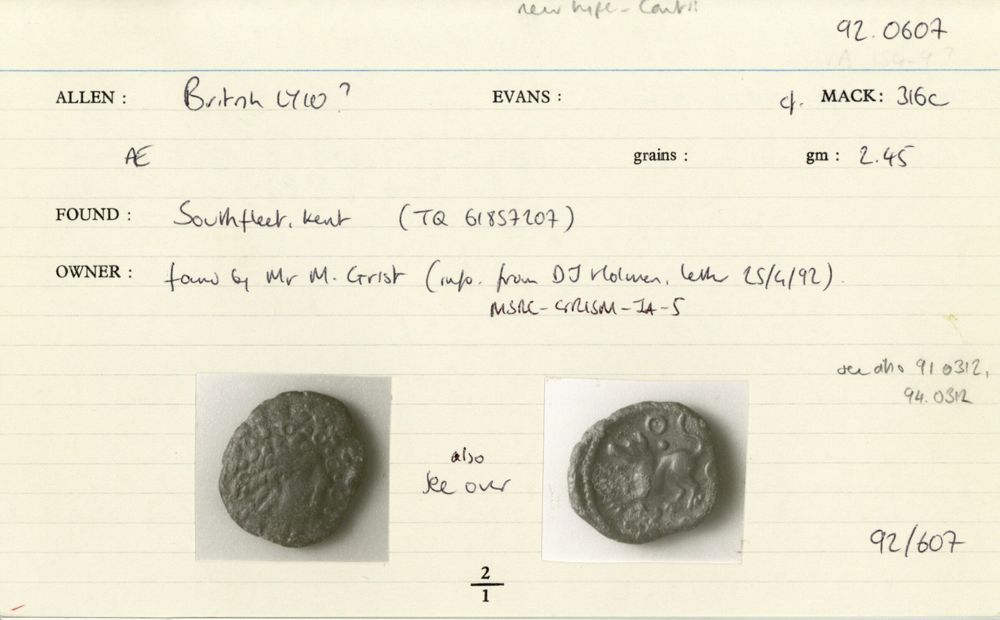 new type - Canti?
92.0607
ALLEN : British LY10? EVANS : cf. MACK: 316c
AE grains : gm : 2.45
FOUND : Southfleet, Kent (TQ 61857207)
OWNER : found by Mr M. Grist (info. from DJ Holman, letter 25/4/92).
MSRC-GRISM-IA-5
see also 91.0312,
94.0312
also
see over
92/607
2
1